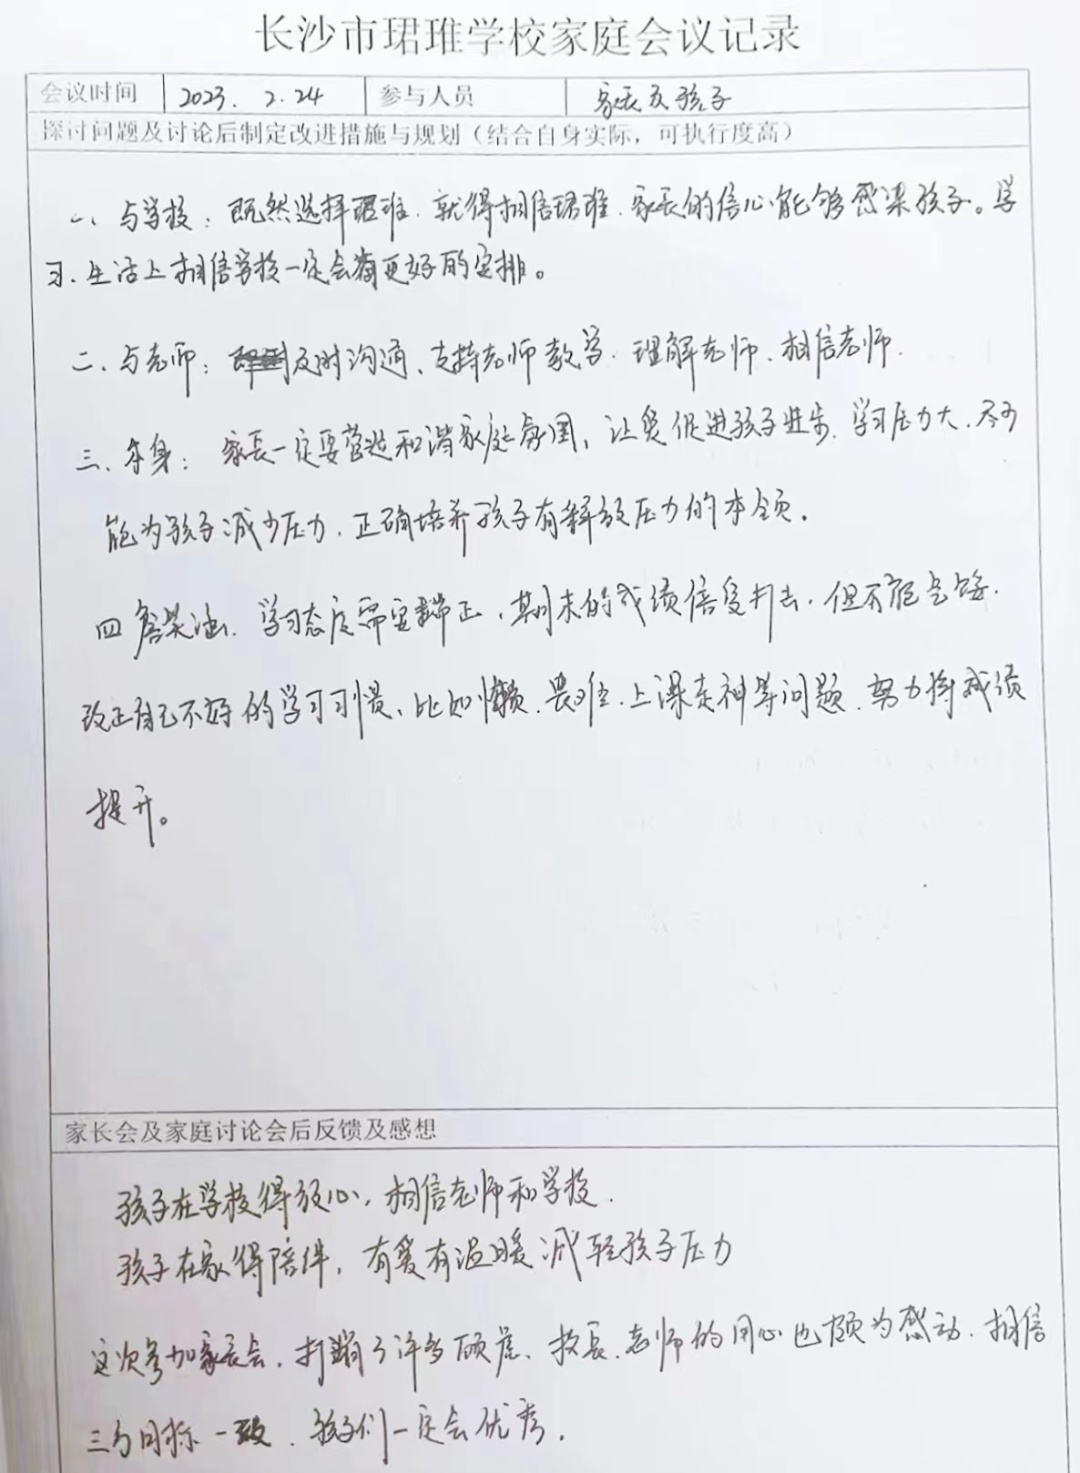 长沙市珺琟学校家庭会议记录
会议时间 2023. 2.24 参与人员 家长及孩子
探讨问题及讨论后制定改进措施与规划（结合自身实际，可执行度高）
一、与学校：既然选择珺琟，就得相信珺琟，家长的信心能够感染孩子。学
习、生活上相信学校一定会有更好的安排。
二、与老师：及时沟通、支持老师教学，理解老师、相信老师.
三、本身：家长一定要营造和谐家庭氛围，让爱促进孩子进步，学习压力大，尽可
能为孩子减少压力，正确培养孩子有释放压力的本领.
四 涵，学习态度需要端正，期末的成绩倍受打击，但不能气馁.
改正自己不好的学习习惯、比如懒、畏难、上课走神等问题，努力将成绩
提升。
家长会及家庭讨论会后反馈及感想
孩子在学校得放心，相信老师和学校.
孩子在家得陪伴，有爱有温暖减轻孩子压力
这次参加家长会，打消了许多顾虑、校长、老师的用心也颇为感动，相信
三方目标一致，孩子们一定会优秀.